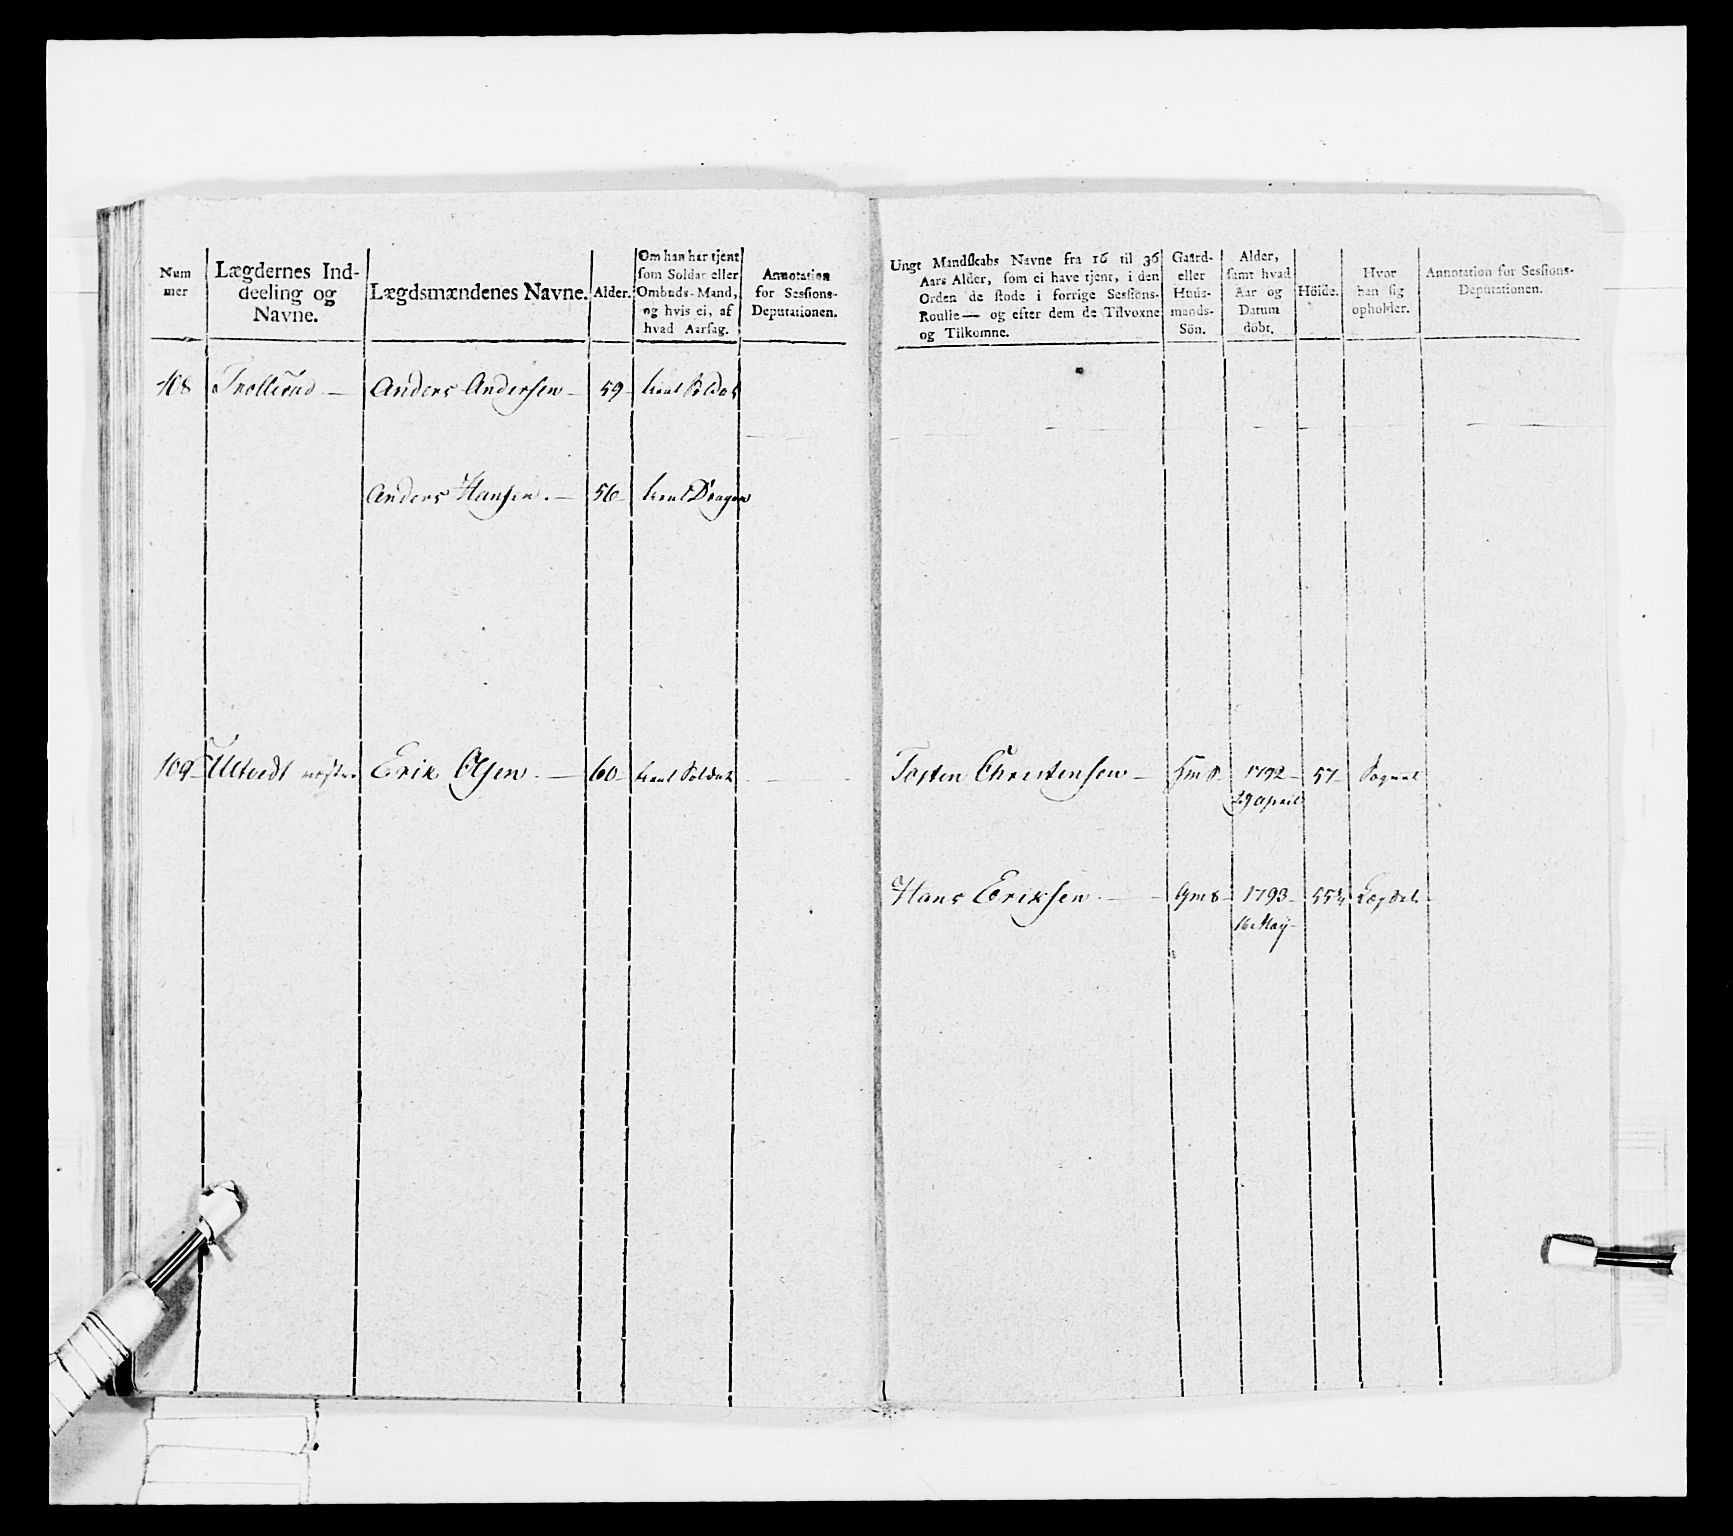 Num
mer
Lægdernes Ind-
deeling og
Navne.
Lægdsmændenes Navne.
Alder.
Om han har tjent
som Soldat eller
Ombuds-Mand,
og hvis ei, af
hvad Aarsag.
Annotation
for Sessions-
Deputationen.
Ungt Mandskabs Navne fra 16 til 36
Aars Alder, som ei have tjent, i den
Orden de stode i forrige Sessions-
Roulle — og efter dem de Tilvoxne
og Tilkomne.
Gaard-
eller
Huus-
mands-
Sön.
Alder,
samt hvad
Aar og
Datum
döbt.
Höide.
Hvor
han sig
opholder.
Annotation for Sessions-
Deputationen.
108 Trollerud — Anders Andersen — 59 — Soldat
Anders Hansen. — 56 — Dragon
109 — Ultvedt Erik Olsen. — 60 — Soldat
Tosten Christensen — HmS — 1792 — 57 — Sognet
29 April
Hans Eriksen. — GmS — 1793 — 55¾ Lægdet
16 May —